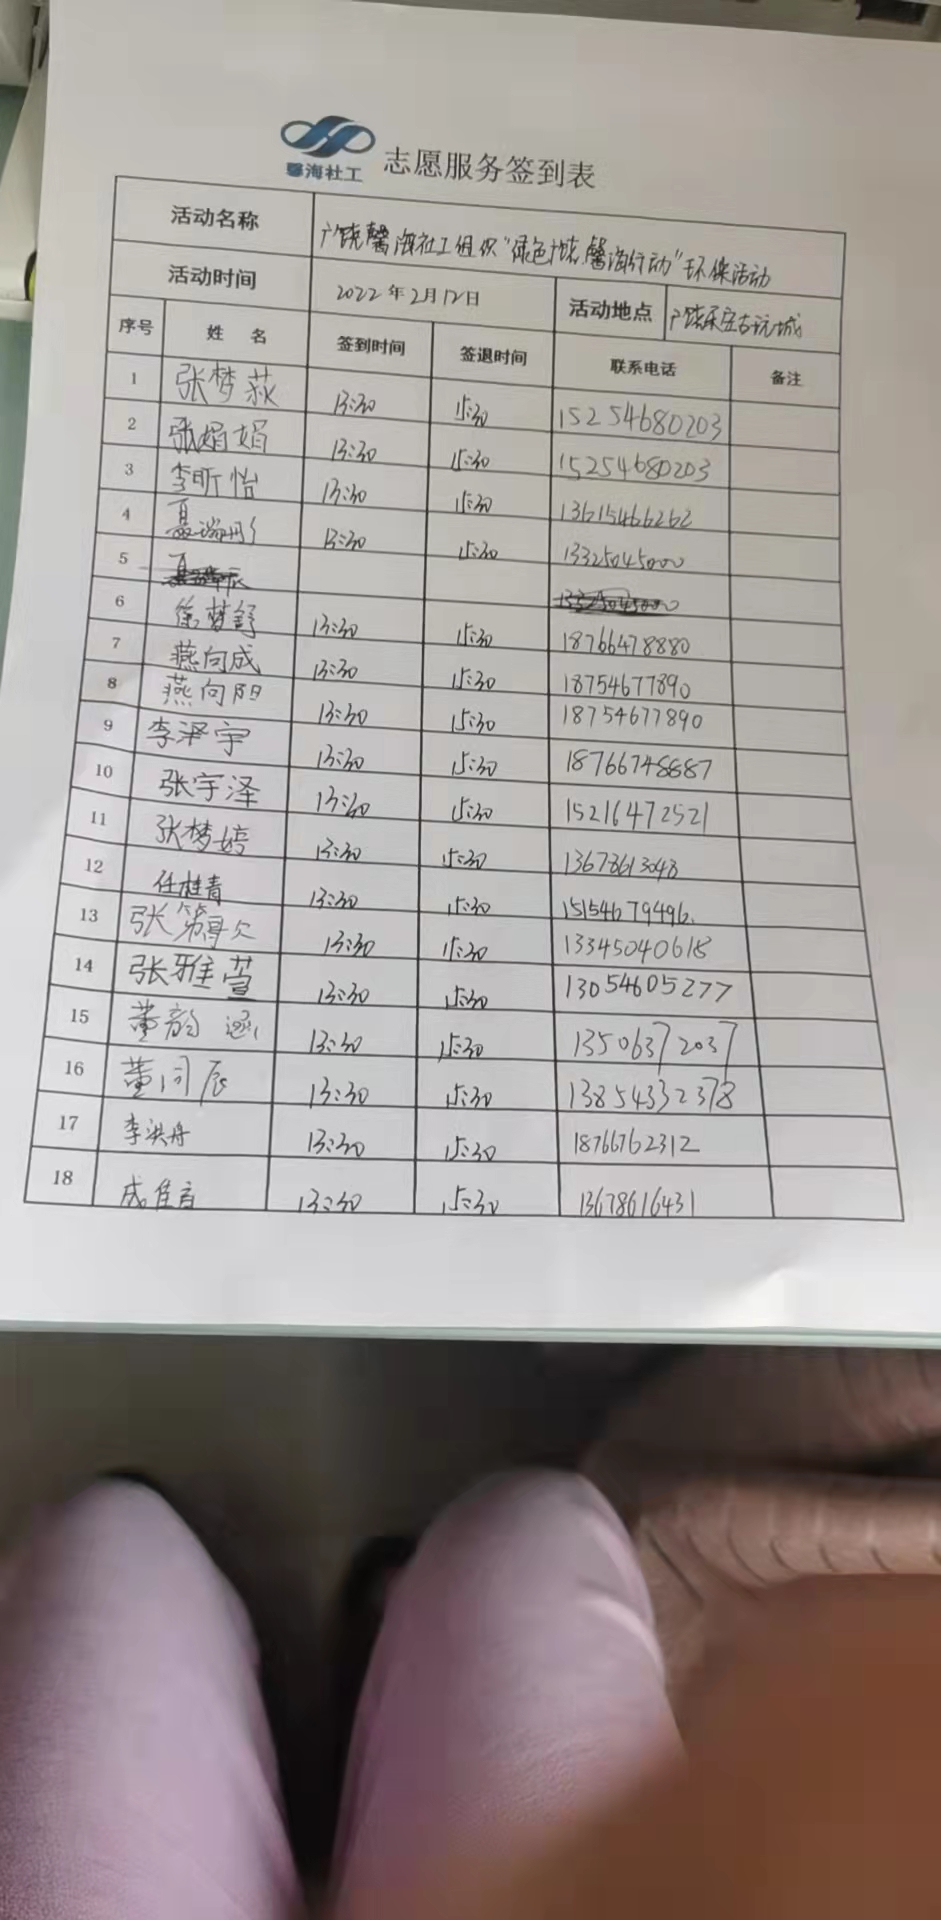 馨海社工 志愿服务签到表
活动名称 广饶馨海社工组织"绿色广饶,馨海行动"环保活动
活动时间 2022年2月12日 活动地点 广饶乐安古玩城
序号 姓 名 签到时间 签退时间 联系电话 备注
1 张梦荻 13:30 15:30 15254680203
2 张娟娟 13:30 15:30 15254680203
3 李昕怡 13:30 15:30 13615466262
4 聂瑞彤 13:30 15:30 13325045000
5
6 徐梦舒 13:30 15:30 18766478880
7 燕向成 13:30 15:30 18754677890
8 燕向阳 13:30 15:30 18754677890
9 李泽宇 13:30 15:30 18766748887
10 张宇泽 13:30 15:30 15216472521
11 张梦婷 13:30 15:30 13678613048
12 任桂青 13:30 15:30 15154679496.
13 张 13:30 15:30 13345040618
14 张雅萱 13:30 15:30 13054605277
15 董韵涵 13:30 15:30 13506372037
16 董同辰 13:30 15:30 13854332378
17 李洪舟 13:30 15:30 18766762312
18 成佳音 13:30 15:30 13678616431